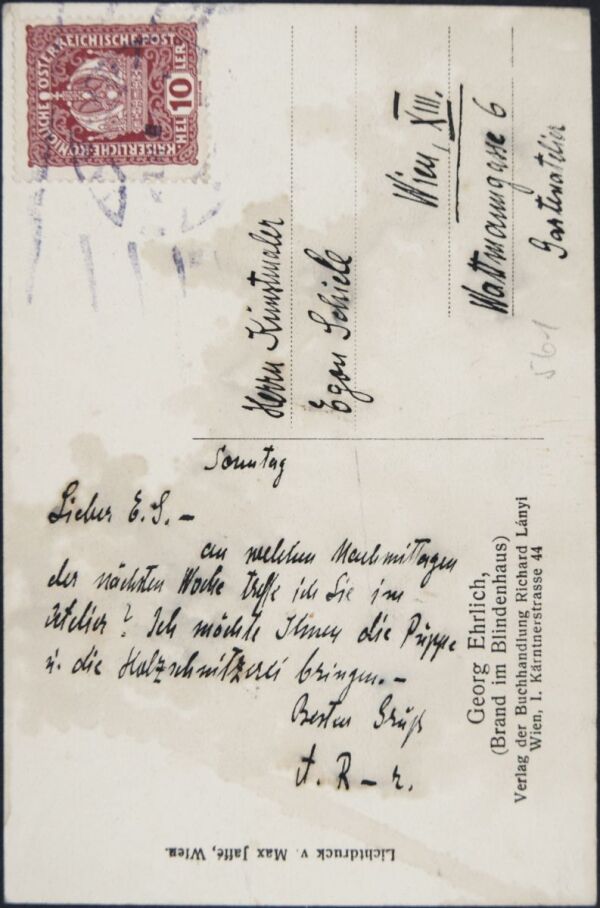 KAISERLICHE KÖNIGLICHE ÖSTERREICHISCHE POST
10
HELLER
Herrn Kunstmaler
Egon Schiele
Wien, XIII.
Wattmanngasse 6
Gartenatelier
561
Sonntag
Lieber E.S. –
an welchen Nachmittagen
der nächsten Woche treffe ich Sie im
Atelier? Ich möchte Ihnen die Puppe
u. die Holzschnitzerei bringen. –
Besten Gruß
A. R – r.
Georg Ehrlich,
(Brand im Blindenhaus)
Verlag der Buchhandlung Richard Lányi
Wien, I. Kärntnerstrasse 44
Lichtdruck v. Max Jaffé, Wien.